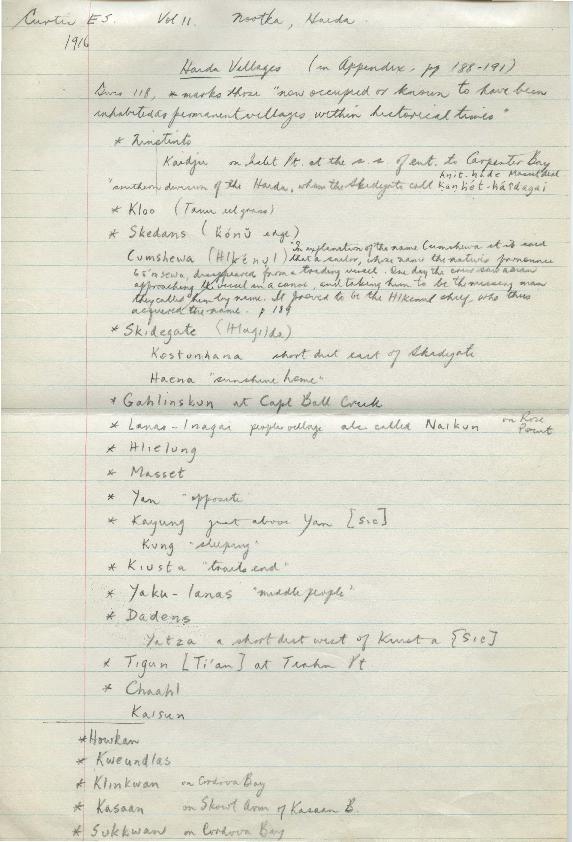 Curtis E.S. Vol 11. Nootka, Haida.
1916
Haida Villages (in Appendix. pp 188-191)
Gives 118, * marks those "now occupied or known to have been
inhabited as permanent villages within historical times"
* Ninstints
Kaidju on Islet Pt. at the s.s of ent. to Carpenter Bay
"southern division of the Haida, whom the Skidegate call
* Kloo (Tanu eel grass)
* Skedans ( edge)
Cumshewa "In explanation of the name Cumshewa it is said
that a sailor, whose name the natives pronounce
disappeared from a trading vessel. One day the crew saw a man
approaching the vessel in a canoe, and taking him to be the missing man
they called him by name. It proved to be the chief, who thus
acquired the name. p 189
* Skidegate
Kostunhana short dist east of Skidegate
Haena "sunshine home"
* Gahlinskun at Cape Ball Creek
* Lanas-lnagai people village also called Naikun on Rose
Point
* Hlielung
* Masset
* Yan "opposite"
* Kayung just above Yan [sic]
Kung "sleeping"
* Kiusta "trails end"
* Yaku-lanas "middle people"
* Dadens
Yatza a short dist west of Kiusta [sic]
* Tigun [Ti'an] at Tiahn Pt
* Chaahl
Kaisun
* Howkan
* Kweundlas
* Klinkwan on Cordova Bay
* Kasaan on Skowl Arm of Kasaan B.
* Sukkwan on Cordova Bay